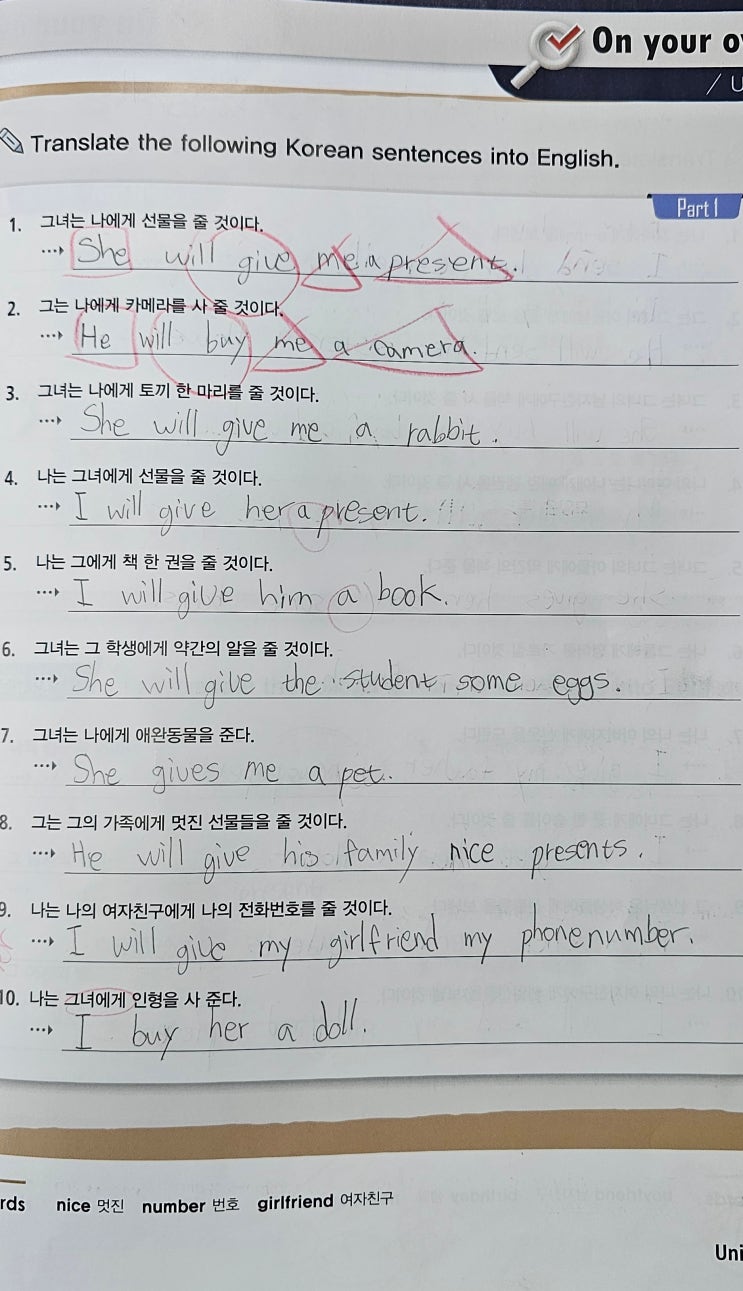 On your
/ U
Translate the following Korean sentences into English.
Part 1
1. 그녀는 나에게 선물을 줄 것이다.
She will give me a present.
2. 그는 나에게 카메라를 사 줄 것이다.
He will buy me a camera.
3. 그녀는 나에게 토끼 한 마리를 줄 것이다.
She will give me a rabbit.
4. 나는 그녀에게 선물을 줄 것이다.
I will give her a present.
5. 나는 그에게 책 한 권을 줄 것이다.
I will give him a book.
6. 그녀는 그 학생에게 약간의 알을 줄 것이다.
She will give the student some eggs.
7. 그녀는 나에게 애완동물을 준다.
She gives me a pet.
8. 그는 그의 가족에게 멋진 선물들을 줄 것이다.
He will give his family nice presents.
9. 나는 나의 여자친구에게 나의 전화번호를 줄 것이다.
I will give my girlfriend my phonenumber.
10. 나는 그녀에게 인형을 사 준다.
I buy her a doll.
rds nice 멋진 number 번호 girlfriend 여자친구
Uni